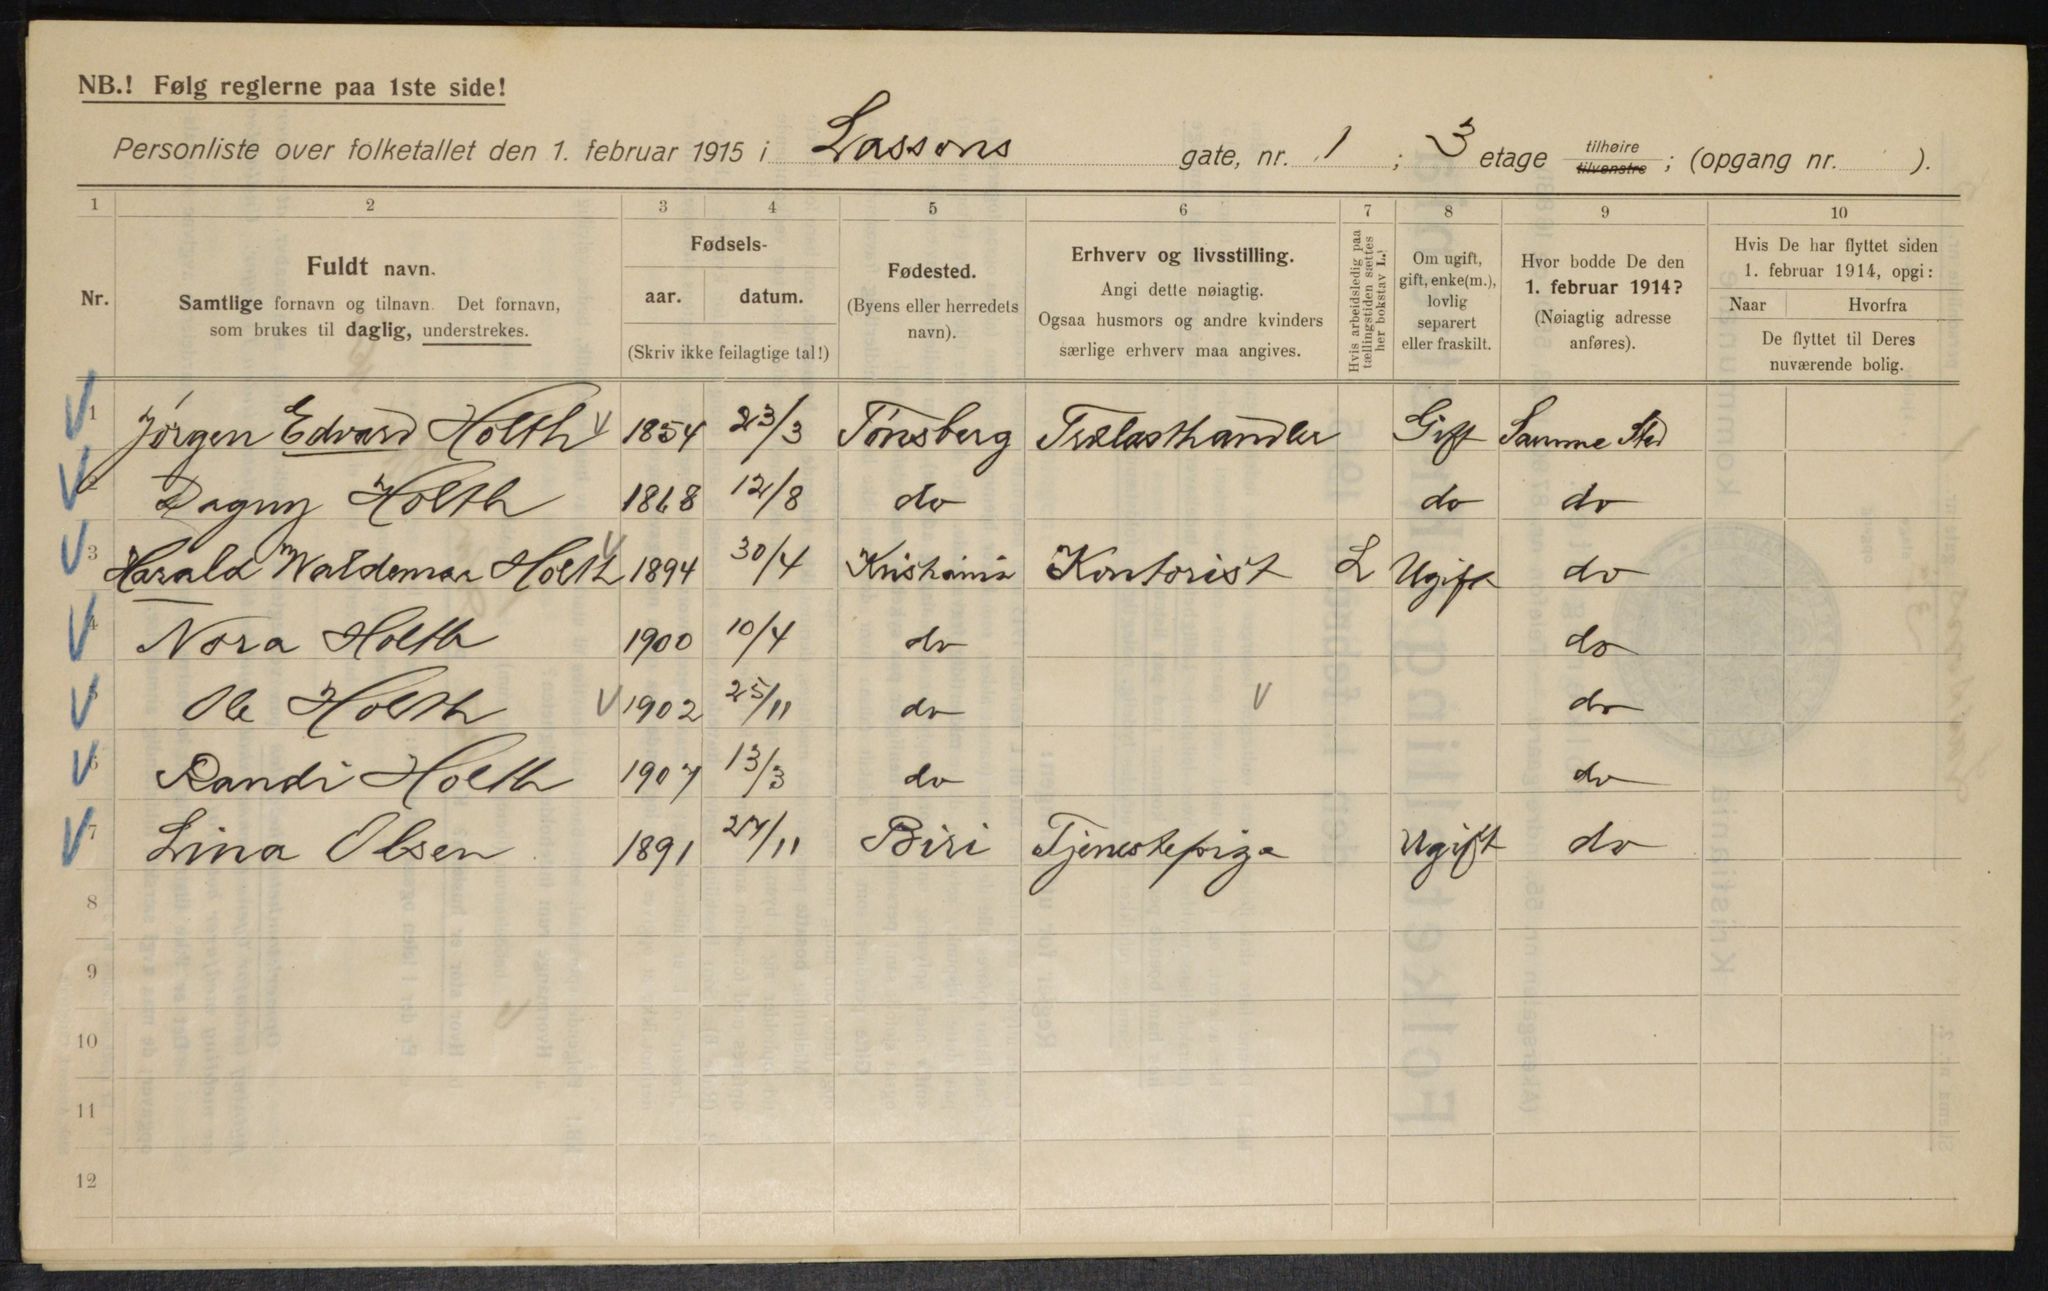 NB.! Følg reglerne paa 1ste side!
Personliste over folketallet den 1. februar 1915 i Lassons gate, nr. 1 ; 3 etage tilhøire tilvenstre ; (opgang nr. ).
1 2 3 4 5 6 7 8 9 10
Nr.
Fuldt navn.
Samtlige fornavn og tilnavn. Det fornavn,
som brukes til daglig, understrekes.
Fødsels-
aar. datum.
(Skriv ikke feilagtige tal!)
Fødested.
(Byens eller herredets
navn).
Erhverv og livsstilling.
Angi dette nøiagtig.
Ogsaa husmors og andre kvinders
særlige erhverv maa angives.
Hvis arbeidsledig paa
tællingstiden sættes
her bokstav L.
Om ugift,
gift, enke(m.),
lovlig
separert
eller fraskilt.
Hvor bodde De den
1. februar 1914?
(Nøiagtig adresse
anføres).
Hvis De har flyttet siden
1. februar 1914, opgi:
Naar Hvorfra
De flyttet til Deres
nuværende bolig.
1 Jørgen Edvard Holth 1854 23/3 Tønsberg Trælasthandler Gift Samme Sted
2 Dagny Holth 1868 12/8 do do do
3 Harald Waldemar Holth 1894 30/4 Kristiania Kontorist L Ugift do
4 Nora Holth 1900 10/4 do do
5 Ole Holth 1902 25/11 do do
6 Randi Holth 1907 13/3 do do
7 Lina Olsen 1891 27/11 Biri Tjenestepige Ugift do
8
9
10
11
12